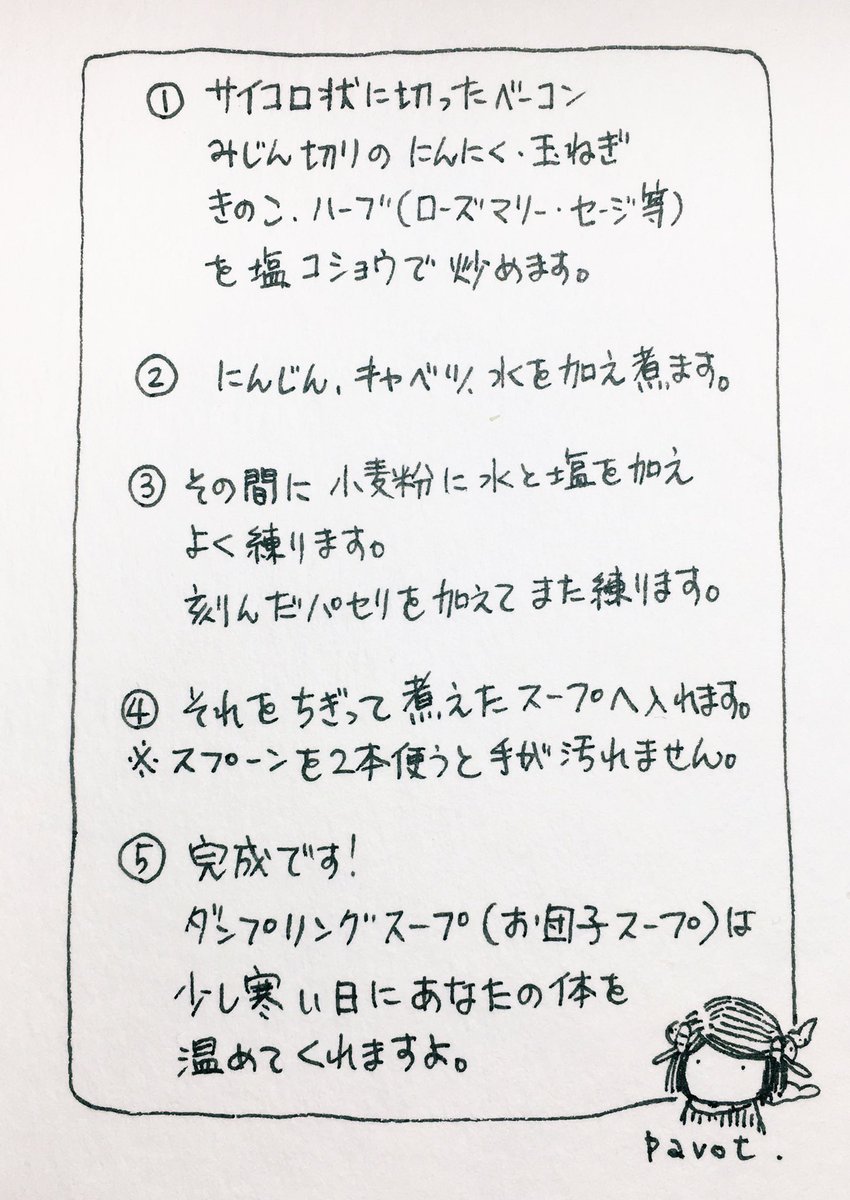 ① サイコロ状に切ったベーコン
みじん切りの にんにく・玉ねぎ
きのこ、ハーブ(ローズマリー・セージ等)
を塩コショウで炒めます。
② にんじん、キャベツ、水を加え煮ます。
③ その間に 小麦粉に水と塩を加え
よく練ります。
刻んだパセリを加えてまた練ります。
④ それをちぎって煮えたスープへ入れます。
※スプーンを2本使うと手が汚れません。
⑤ 完成です!
ダンプリングスープ(お団子スープ)は
少し寒い日にあなたの体を
温めてくれますよ。
pavot.